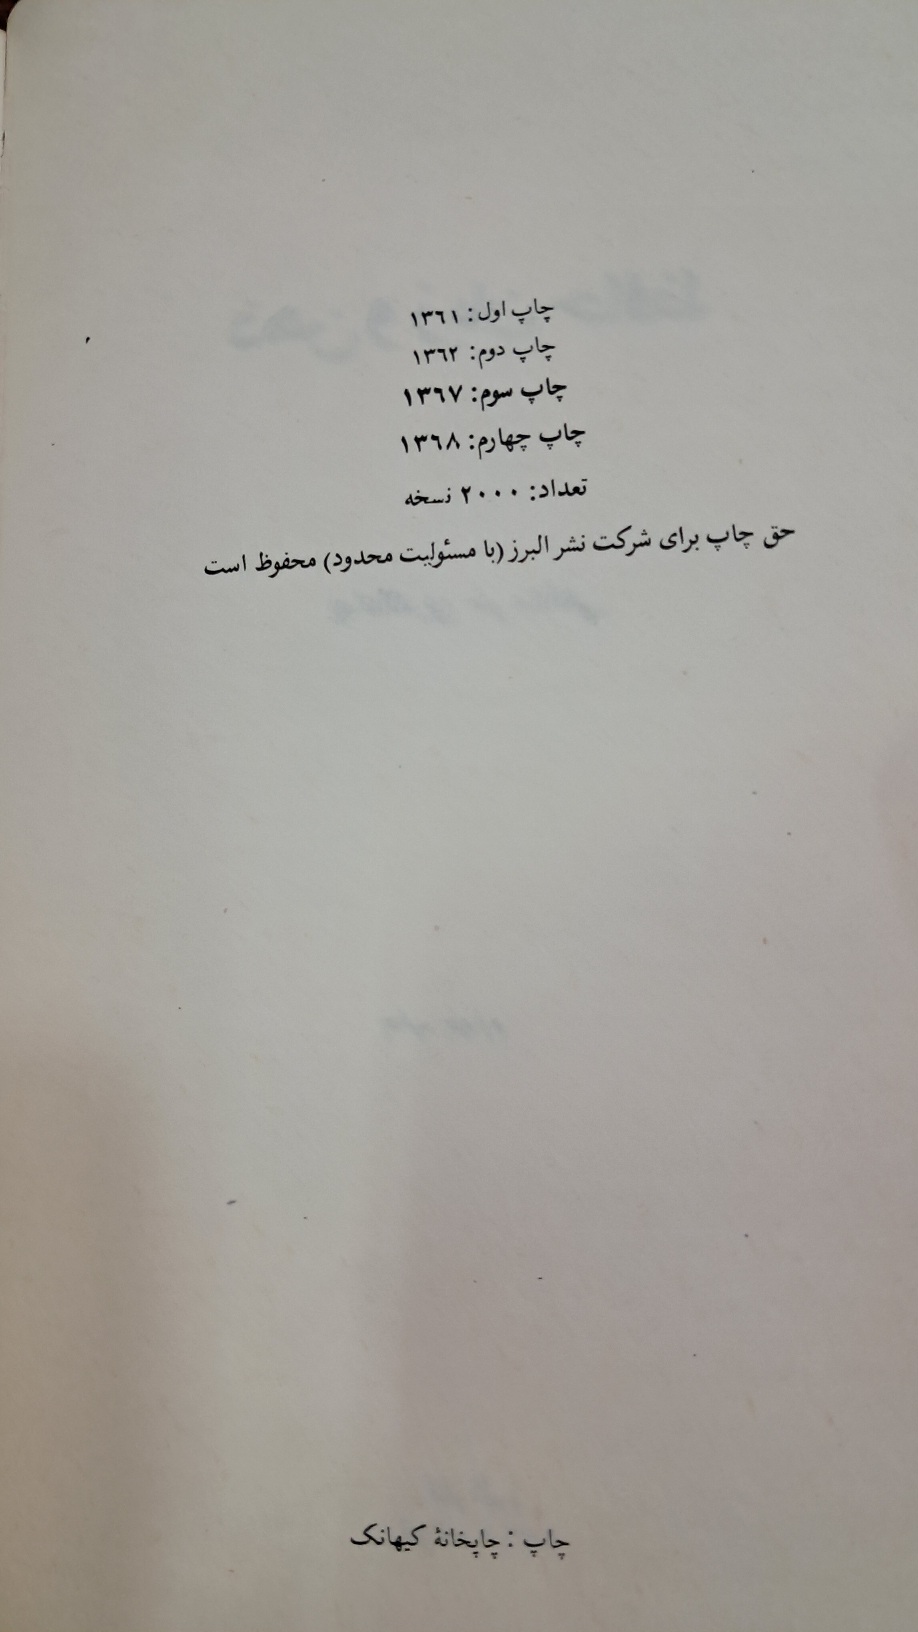 چاپ اول: ۱۳٦۱
چاپ دوم: ۱۳٦۲
چاپ سوم: ۱۳٦۷
چاپ چهارم: ۱۳٦۸
تعداد: ۲۰۰۰ نسخه
حق چاپ برای شرکت نشر البرز (با مسئولیت محدود) محفوظ است
چاپ : چاپخانهٔ کیهانک